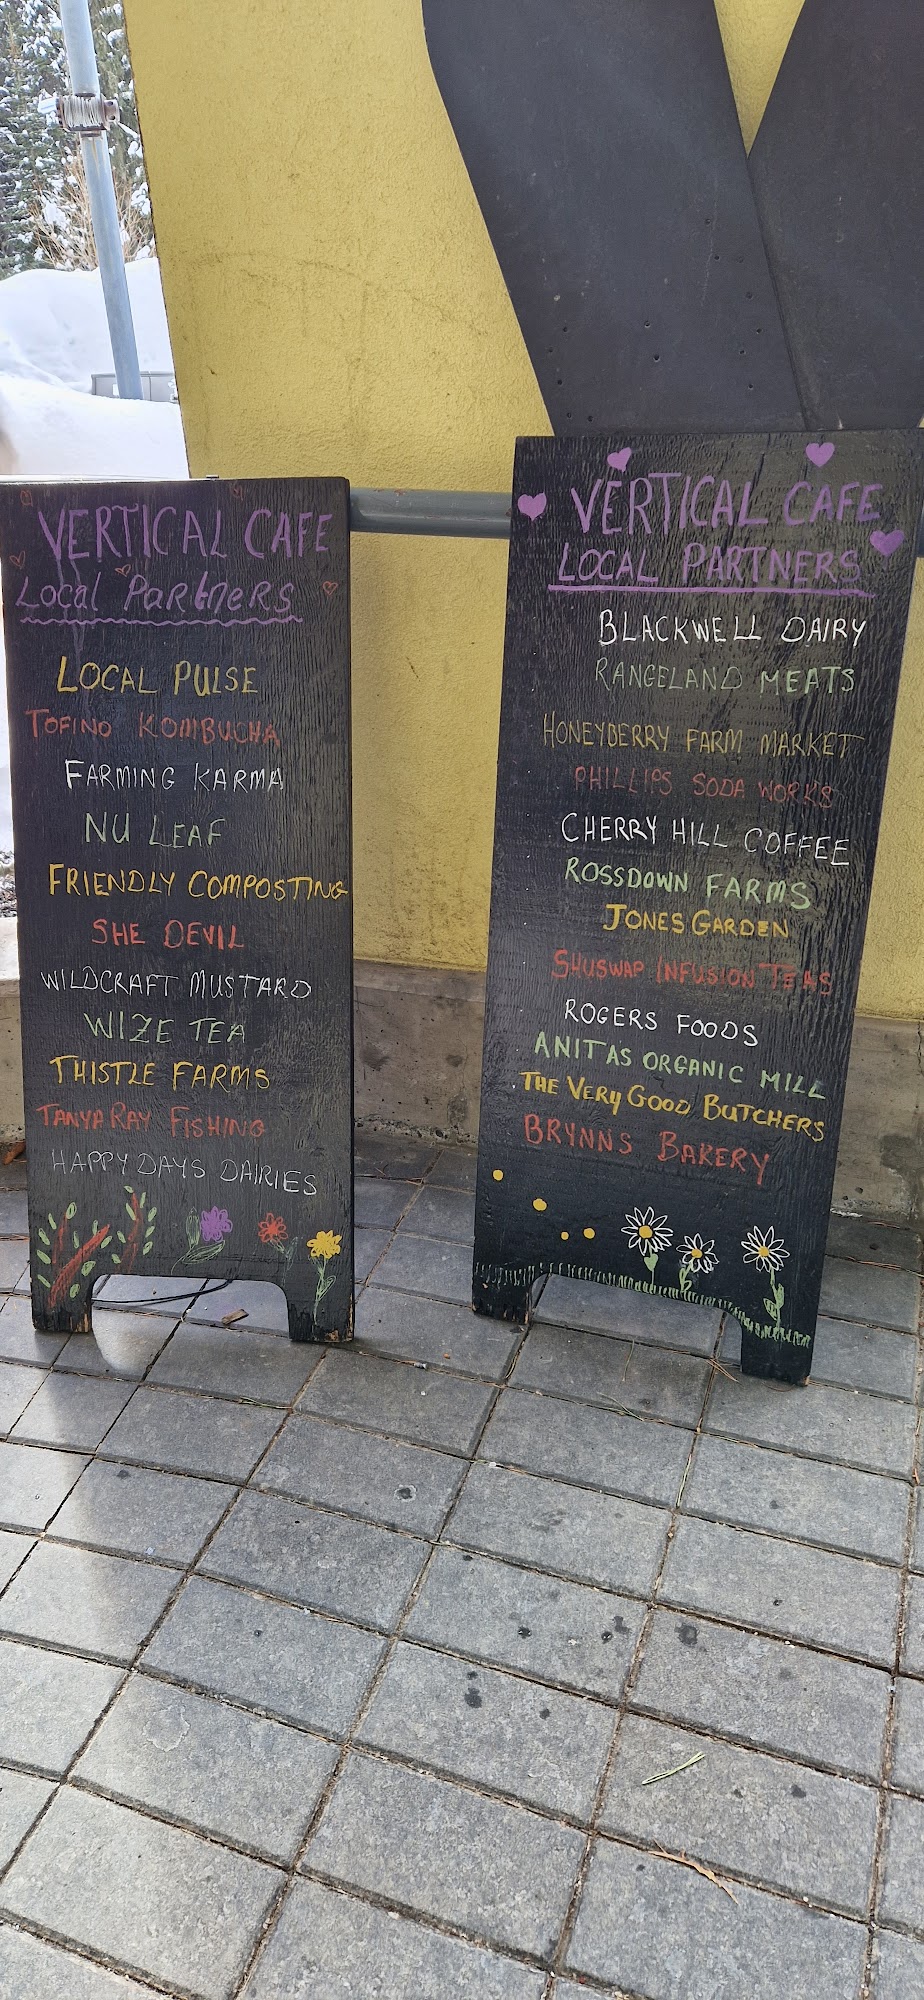 VERTICAL CAFE
Local Partners
LOCAL PULSE
TOFINO KOMBUCHA
FARMING KARMA
NU LEAF
FRIENDLY COMPOSTING
SHE DEVIL
WILDCRAFT MUSTARD
WIZE TEA
THISTLE FARMS
TANYA RAY FISHING
HAPPY DAYS DAIRIES
VERTICAL CAFE
LOCAL PARTNERS
BLACKWELL DAIRY
RANGELAND MEATS
HONEYBERRY FARM MARKET
PHILLIPS SODA WORKS
CHERRY HILL COFFEE
ROSSDOWN FARMS
JONES GARDEN
SHUSWAP INFUSION TEAS
ROGERS FOODS
ANITAS ORGANIC MILL
THE VERY GOOD BUTCHERS
BRYNNS BAKERY